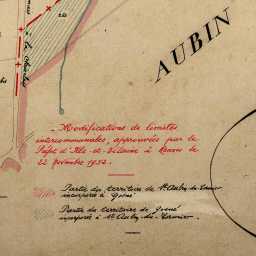 à la
AUBIN
Modifications de limites
intercommunales, approuvées par le
Préfet d'Ille-et-Vilaine à Rennes le
22 Novembre 1952.
Partie du territoire de St Aubin du Cormier
incorporée à Gosné
Partie du territoire de Gosné
incorporée à St Aubin-du-Cormier.